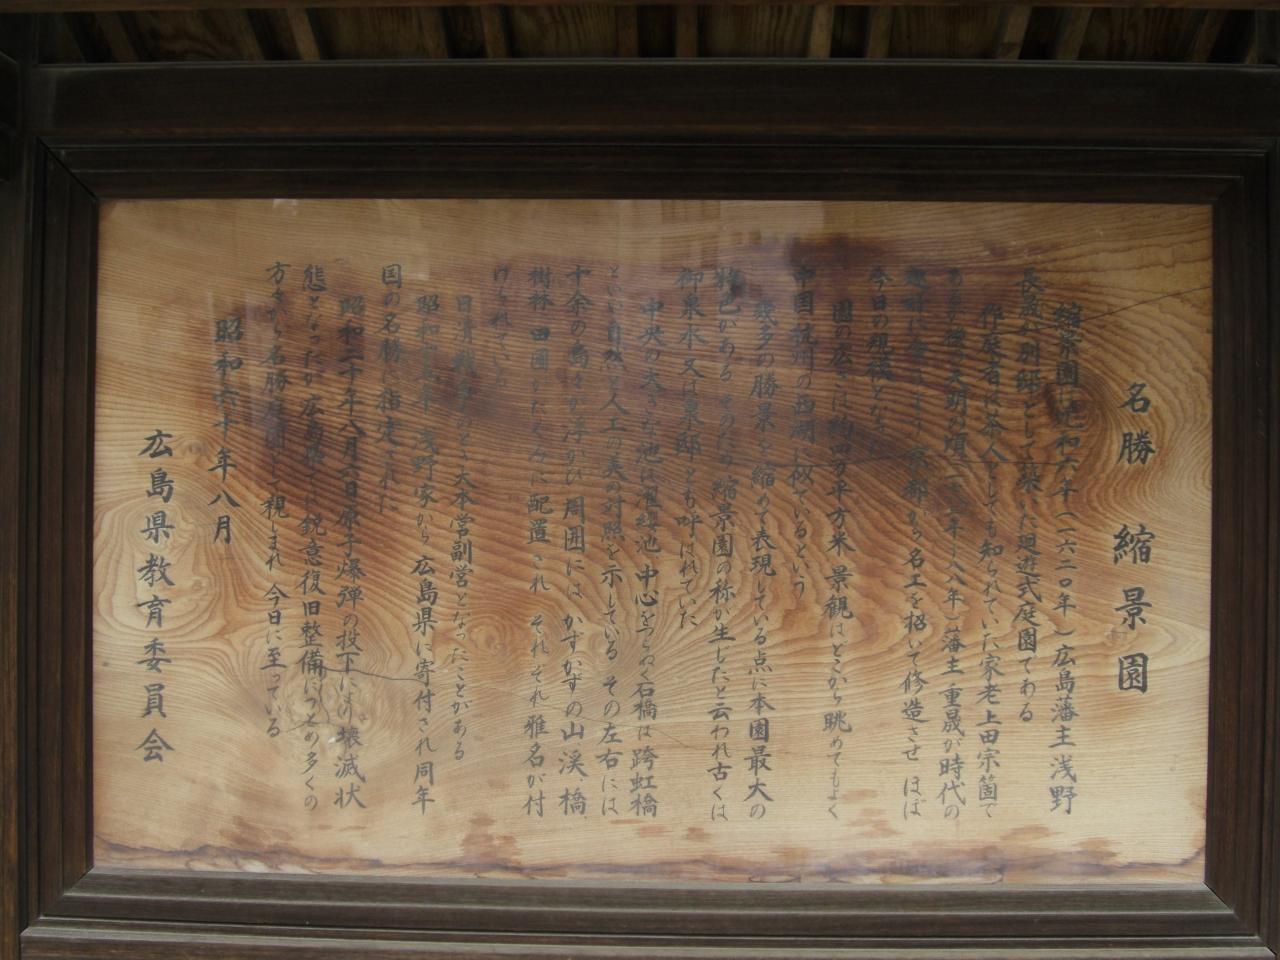 名勝 縮景園
縮景園は元和六年(一六二〇年)広島藩主浅野
長晟が別邸として築いた廻遊式庭園である
作庭者は茶人としても知られていた家老上田宗箇で
あるが 後の天明の頃( 八三年−八八年)藩主 重晟が時代の
趣味に合うよう 京都から名工を招いて修造させ ほぼ
今日の規模となった
園の広さは約四万平方米 景観はどこから眺めてもよく
中国杭州の西湖に似ているという
幾多の勝景を縮めて表現している点に本園最大の
特色がある そのため 縮景園の称が生じたと云われ古くは
御泉水 又は泉邸 とも呼ばれていた
中央の大きな池は濯纓池 中心をつらぬく石橋は跨虹橋
といい自然と人工の美の対照を示している その左右には
十余の島々が浮かび 周囲には かずかずの山 渓 橋
樹林 田圃がたくみに配置され それぞれ雅名が付
けられている
日清戦争のとき大本営副営となったことがある
昭和十五年 浅野家から 広島県に寄付され同年
国の名勝に指定された
昭和二十年八月六日原子爆弾の投下により壊滅状
態となったが広島県では鋭意復旧整備につとめ多くの
方々から名勝庭園として親しまれ 今日に至っている
昭和六十年八月
広島県教育委員会